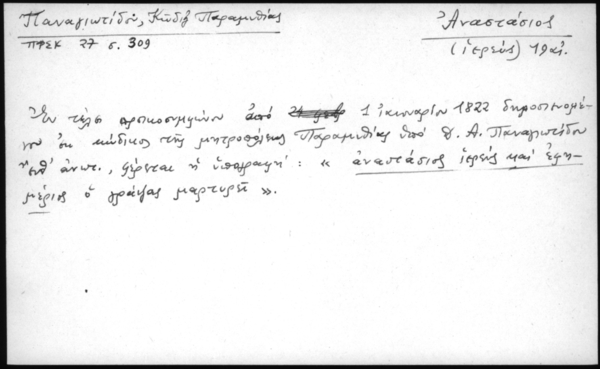 Παναγιωτίδου, Κῶδιξ Παραμυθίας
ΠΦΣΚ 27 σ. 309
Ἀναστάσιος
(ἱερεύς) 19 αἰ.
Ἐν τέλει προικοσυμφώνου ἀπό 1 ἰανουαρίου 1822 δημοσιευομέ-
νου ἐκ κώδικος τῆς μητροπόλεως Παραμυθίας ὑπό Δ. Α. Παναγιωτίδου
ἔνθ' ἀνωτ., φέρεται ἡ ὑπογραφή: « ἀναστάσιος ἱερεύς καί ἐφη-
μέριος ὁ γράψας μαρτυρεῖ ».